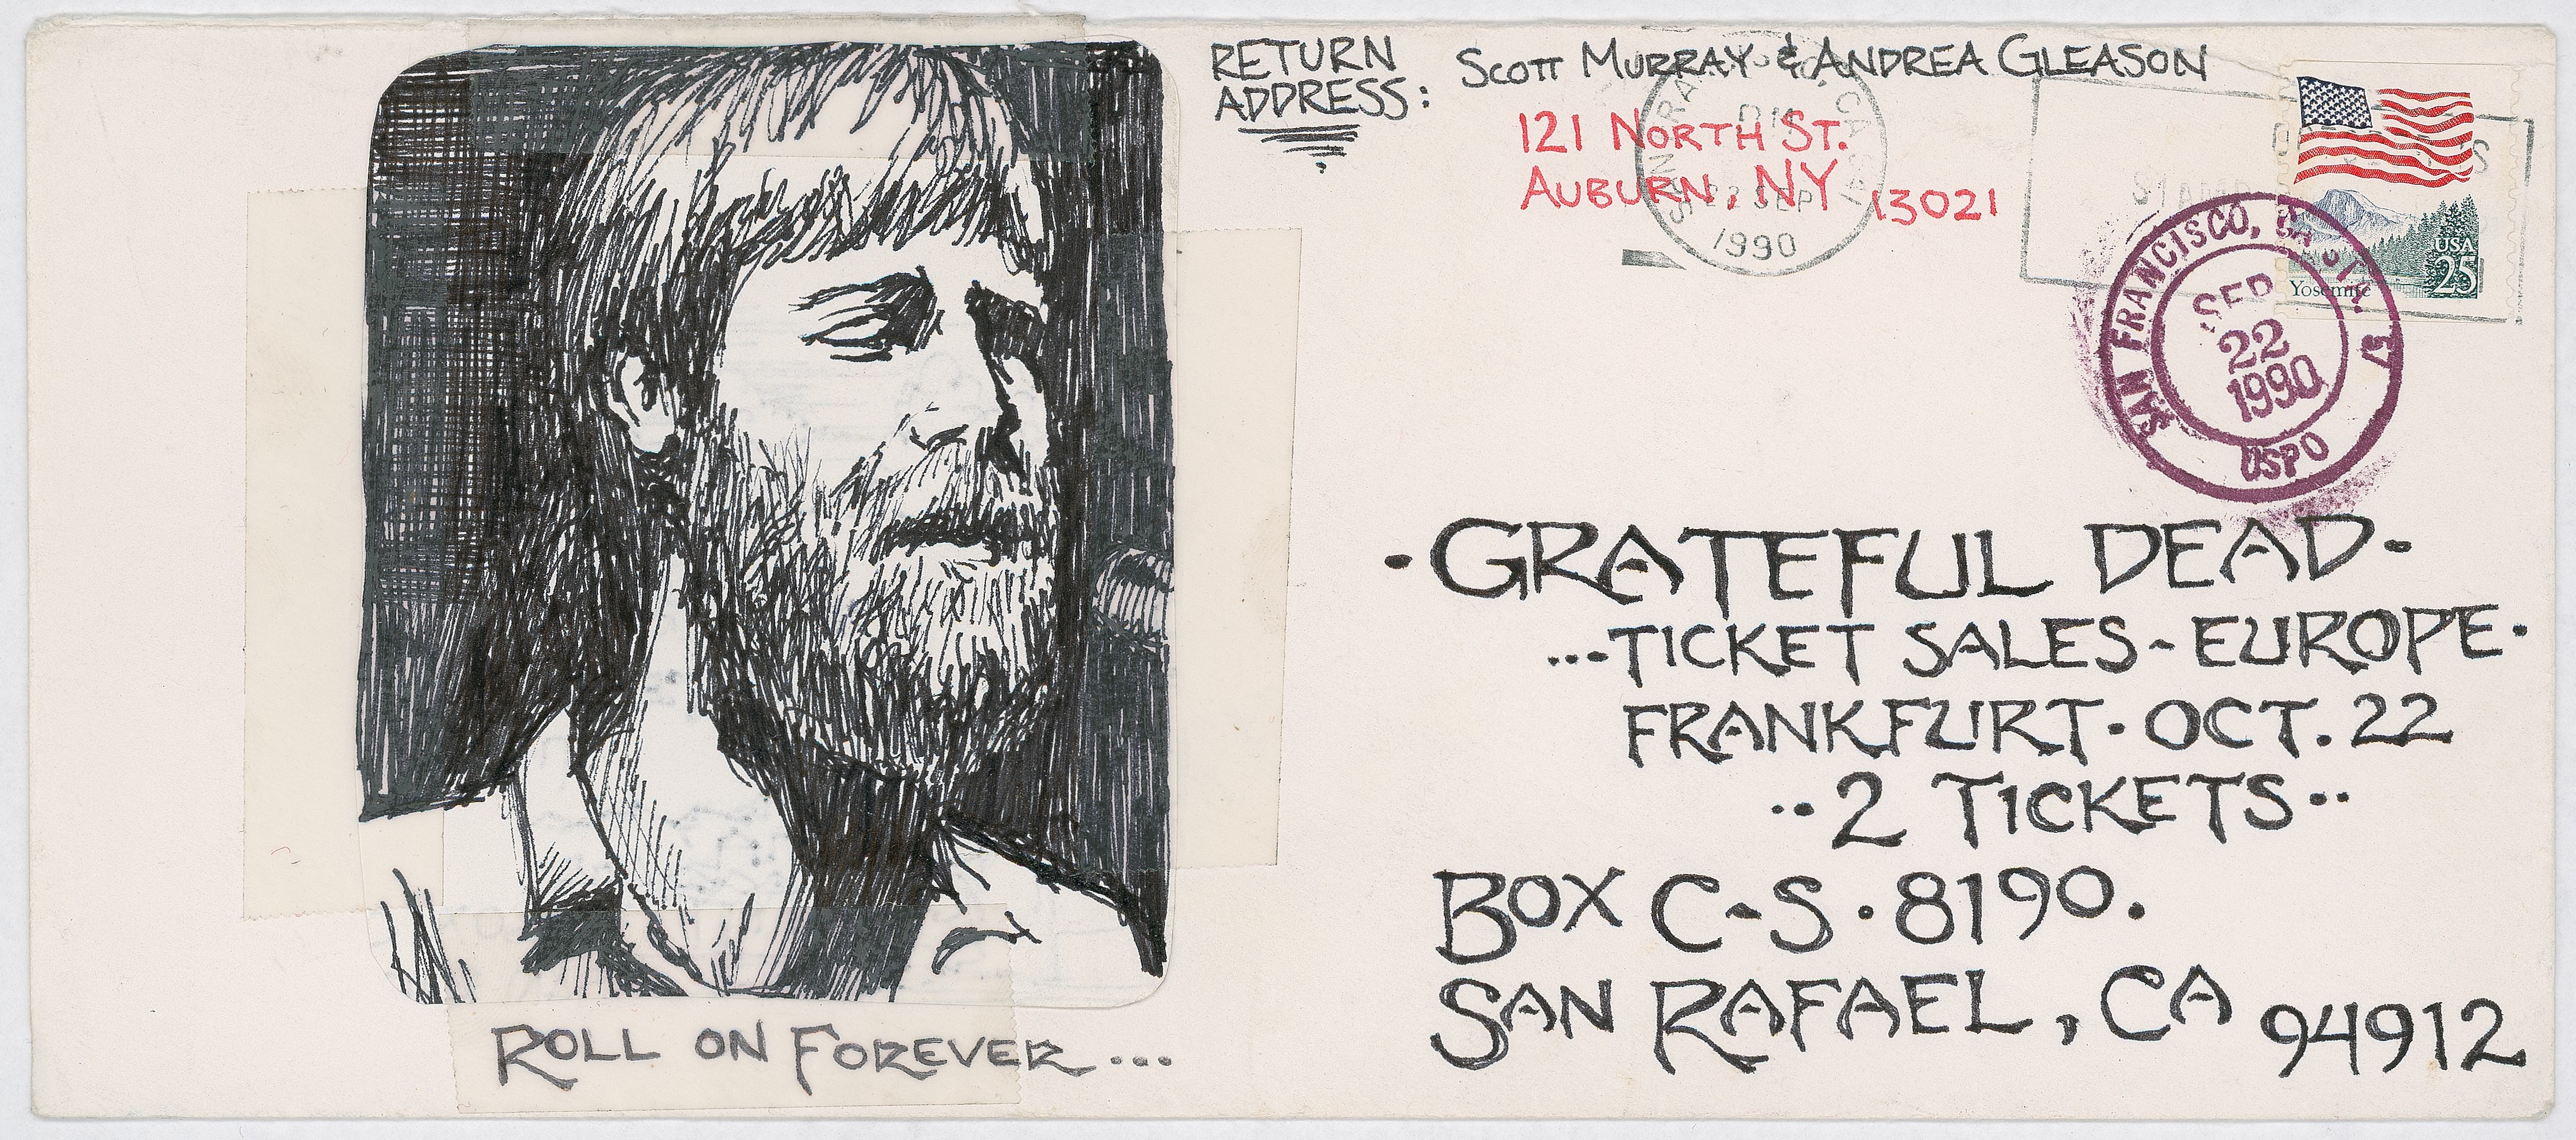 RETURN
ADDRESS:
SCOTT MURRAY & ANDREA GLEASON
121 NORTH ST.
AUBURN, NY 13021
22 SEP
1990
USA
25
Yosemite
SAN FRANCISCO, CA
SEP
22
1990
USPO
·GRATEFUL DEAD·
...TICKET SALES-EUROPE·
FRANKFURT·OCT.22
··2 TICKETS··
BOX C-S·8190.
SAN RAFAEL, CA 94912
ROLL ON FOREVER...